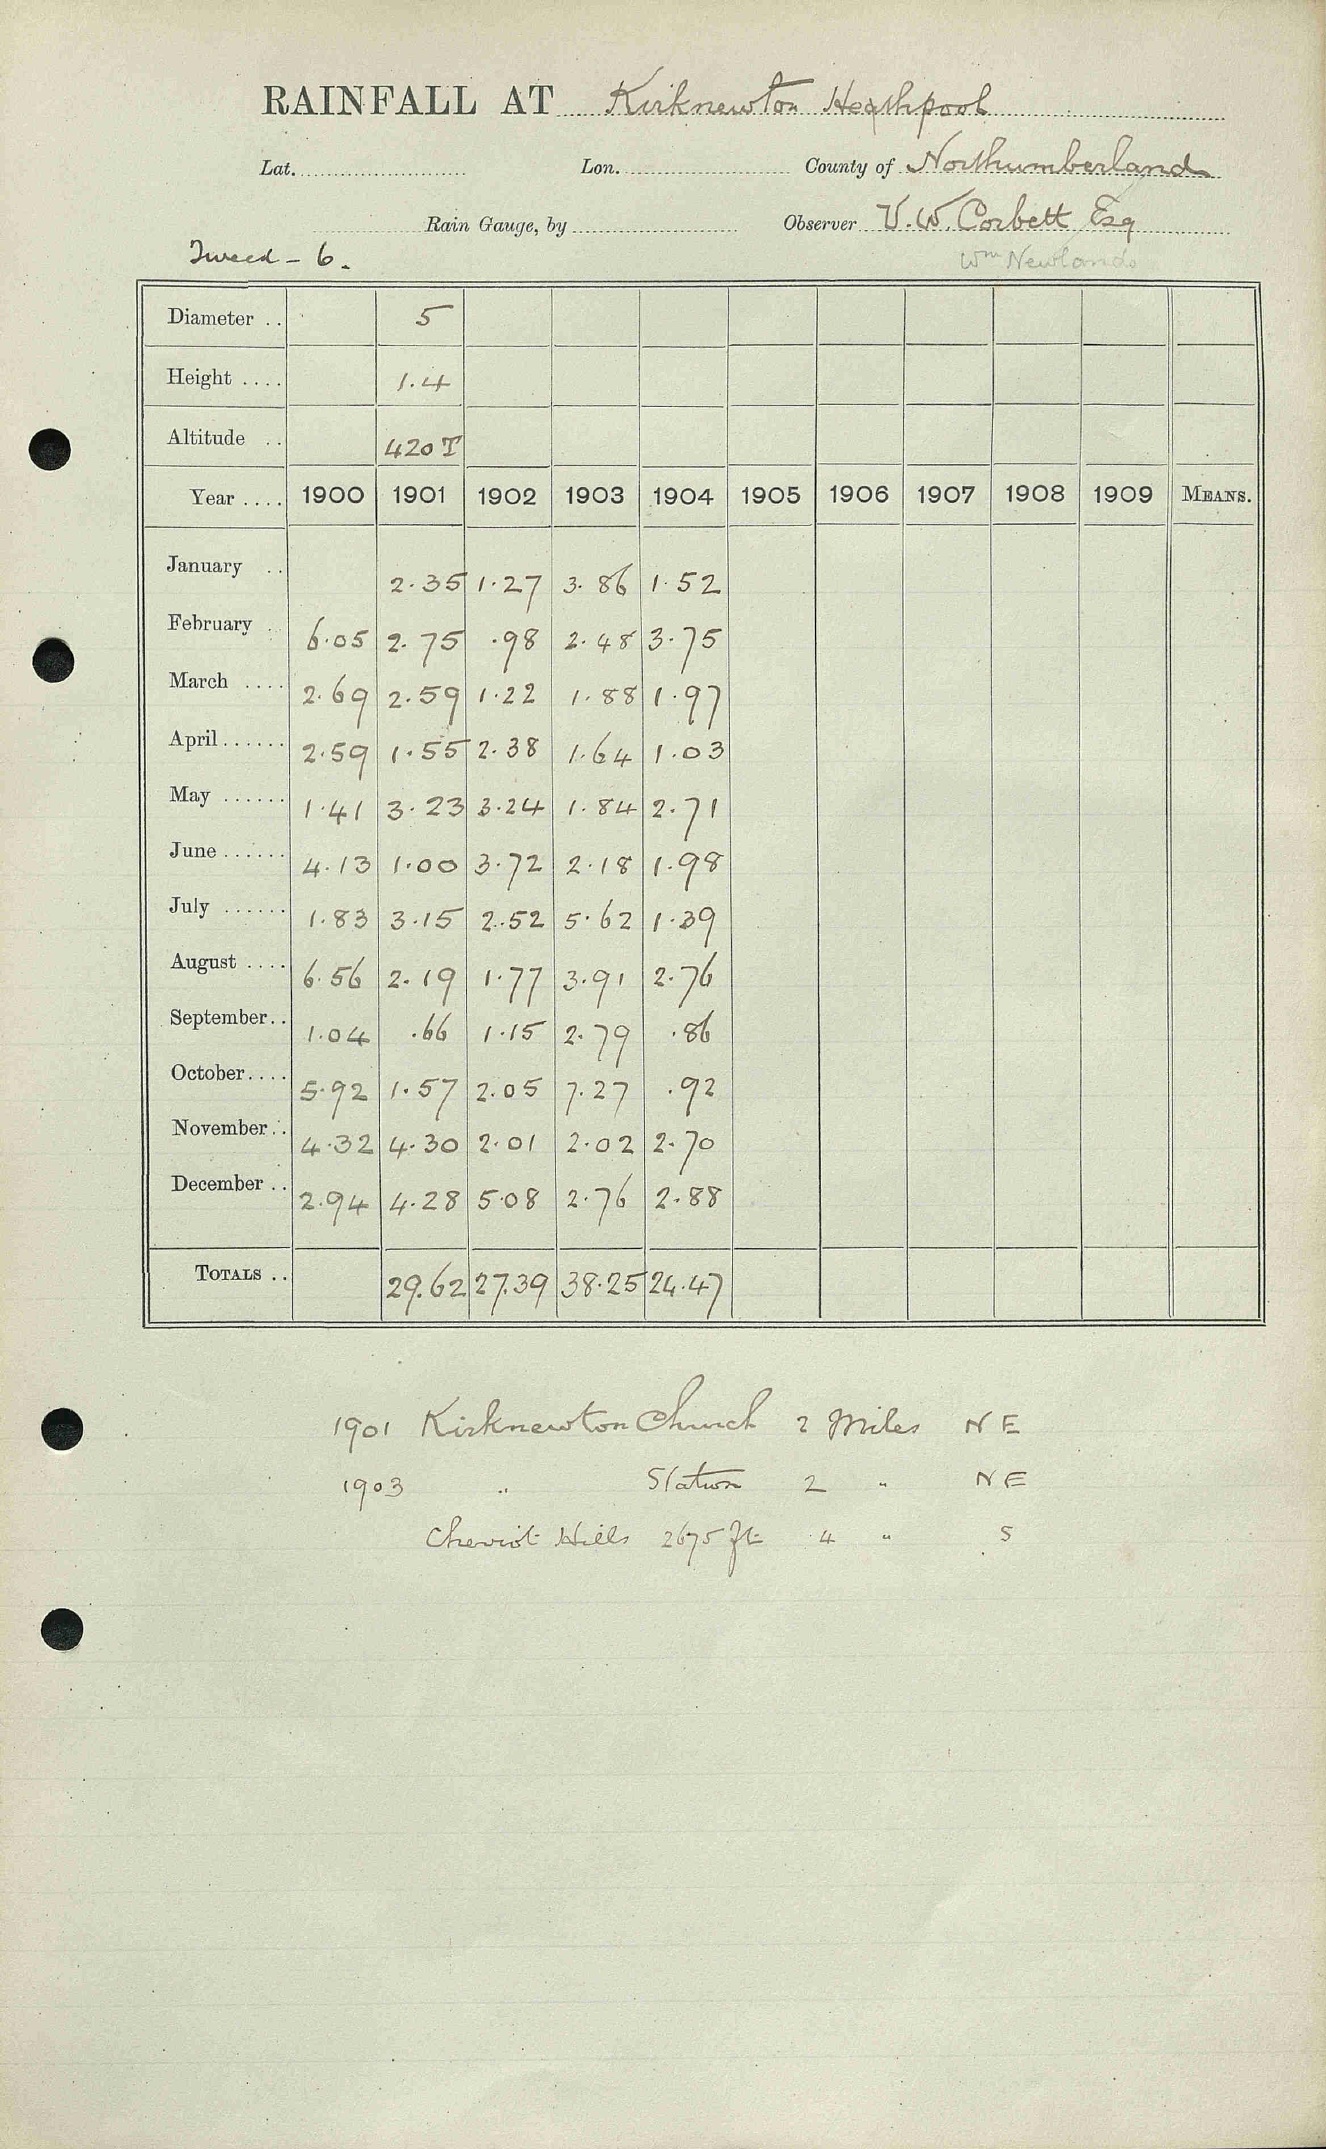 RAINFALL AT Kirknewton Heathpool
Lat. Lon. County of Northumberland
Rain Gauge, by Observer V. W. Corbett Esq
Tweed - 6. Wm Newlands
Diameter .. 5
Height .... 1.4
Altitude .. 420 T
Year .... 1900 1901 1902 1903 1904 1905 1906 1907 1908 1909 MEANS.
January .. 2.35 1.27 3.86 1.52
February .. 6.05 2.75 .98 2.48 3.75
March .... 2.69 2.59 1.22 1.88 1.97
April ...... 2.59 1.55 2.38 1.64 1.03
May ...... 1.41 3.23 3.24 1.84 2.71
June ...... 4.13 1.00 3.72 2.18 1.98
July ...... 1.83 3.15 2.52 5.62 1.39
August .... 6.56 2.19 1.77 3.91 2.76
September.. 1.04 .66 1.15 2.79 .86
October.... 5.92 1.57 2.05 7.27 .92
November.. 4.32 4.30 2.01 2.02 2.70
December .. 2.94 4.28 5.08 2.76 2.88
TOTALS .. 29.62 27.39 38.25 24.47
1901 Kirknewton Church 2 Miles N E
1903 " Station 2 " N E
Cheviot Hills 2675 ft 4 " S